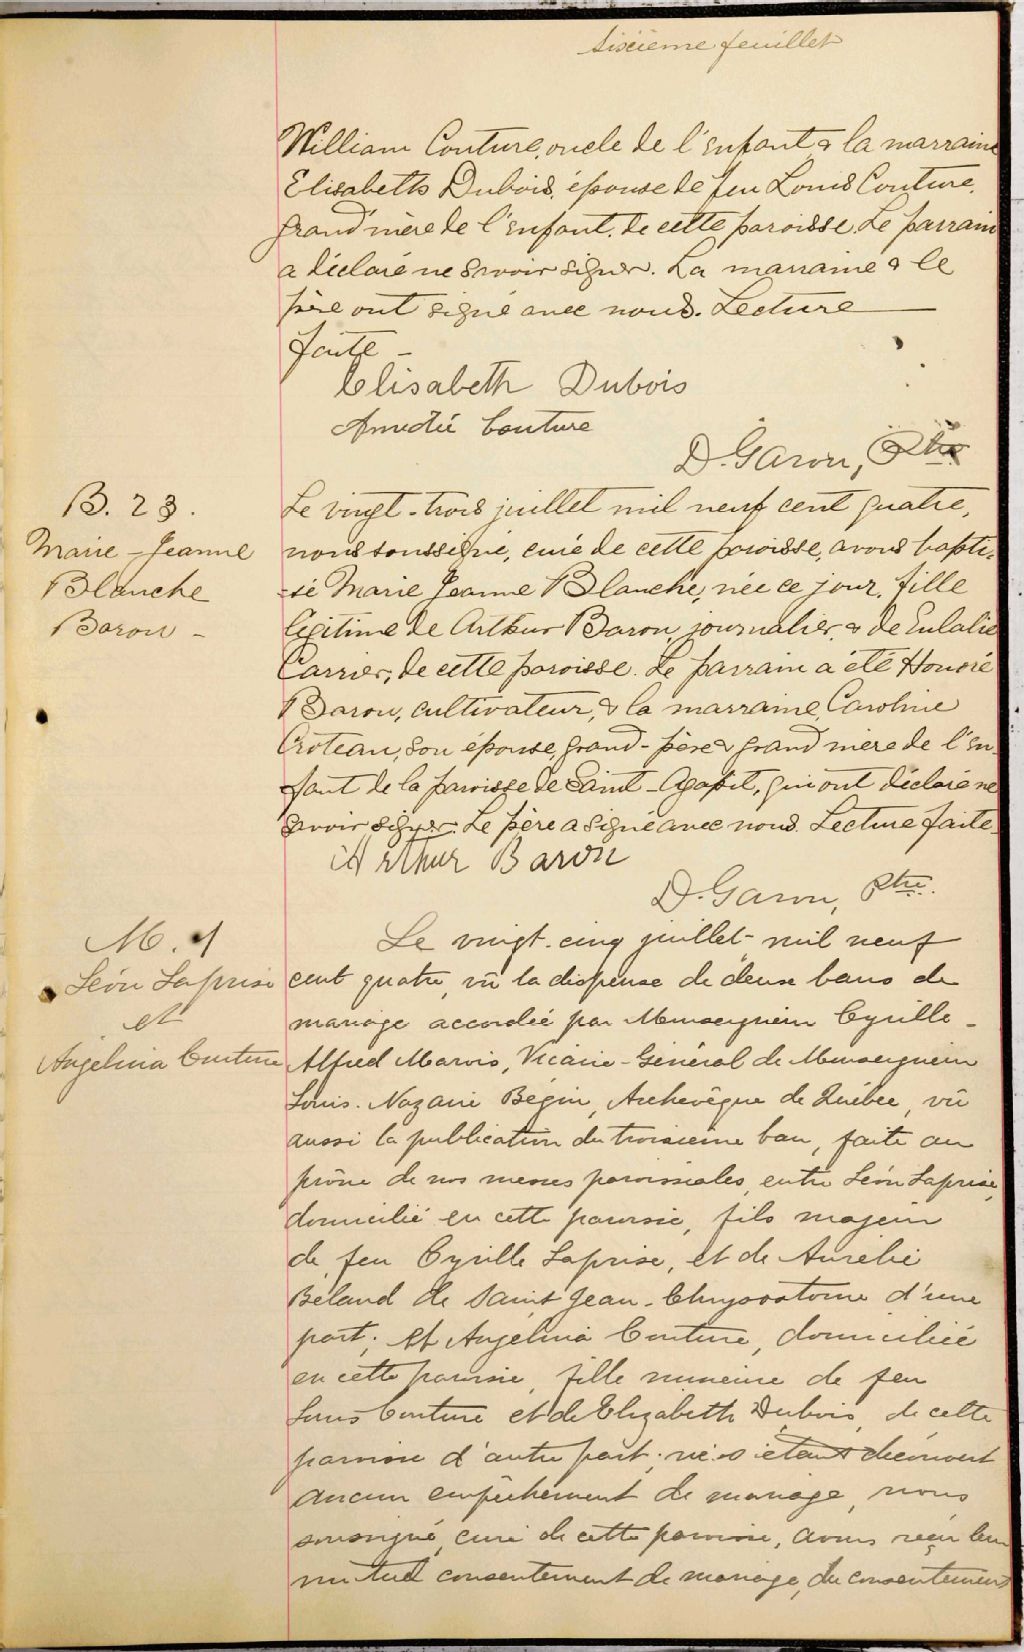 Sixième feuillet
William Couture, oncle de l'enfant, & la marraine
Elisabeth Dubois, épouse de feu Louis Couture,
grand'mère de l'enfant, de cette paroisse. Le parrain
a déclaré ne savoir signer. La marraine & le
père ont signé avec nous. Lecture
faite —
Elisabeth Dubois
Amedée Couture
D. Garon, Ptre
B. 23.
Marie-Jeanne
Blanche
Baron -
Le vingt-trois juillet mil neuf cent quatre,
nous soussigné, curé de cette paroisse, avons bapti-
-sé Marie Jeanne Blanche, née ce jour, fille
légitime de Arthur Baron, journalier, & de Eulalie
Carrier, de cette paroisse. Le parrain a été Honoré
Baron, cultivateur, & la marraine, Caroline
Croteau, son épouse, grand-père & grand'mère de l'en-
fant de la paroisse de Saint-Agapit, qui ont déclaré ne
savoir signer. Le père a signé avec nous. Lecture faite.
Arthur Baron
D. Garon, Ptre.
M. 1
Léon Laprise
et
Angelina Couture
Le vingt-cinq juillet mil neuf
cent quatre, vû la dispense de deux bans de
mariage accordée par Monseigneur Cyrille-
Alfred Marois, Vicaire-Général de Monseigneur
Louis-Nazaire Bégin, Archevêque de Québec, vû
aussi la publication du troisième ban, faite au
prône de nos messes paroissiales, entre Léon Laprise,
domicilié en cette paroisse, fils majeur
de feu Cyrille Laprise, et de Aurélie
Béland de Saint Jean-Chrysostome d'une
part; et Angelina Couture, domiciliée
en cette paroisse, fille mineure de feu
Louis Couture et de Elizabeth Dubois, de cette
paroisse d'autre part; ne s'étant découvert
aucun empêchement de mariage, nous
soussigné, curé de cette paroisse, avons reçu leur
mutuel consentement de mariage, du consentement